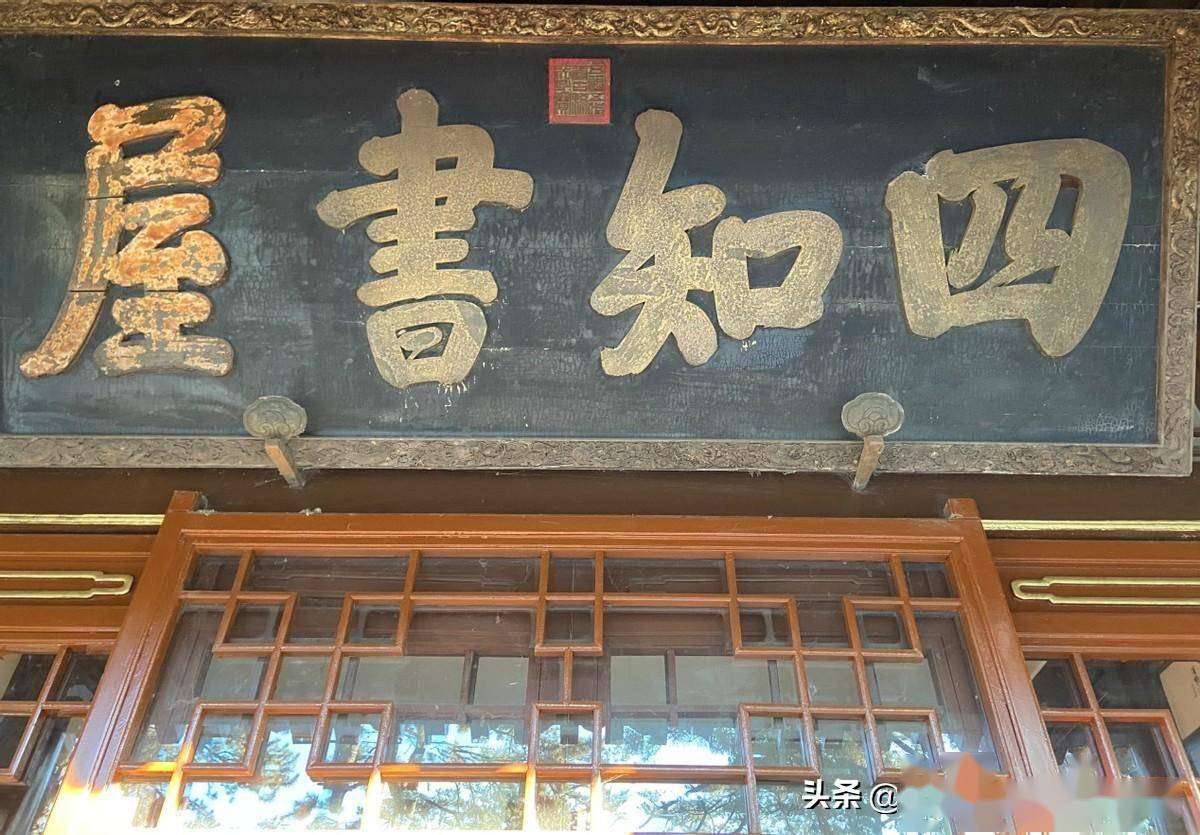 四知書屋
头条 @